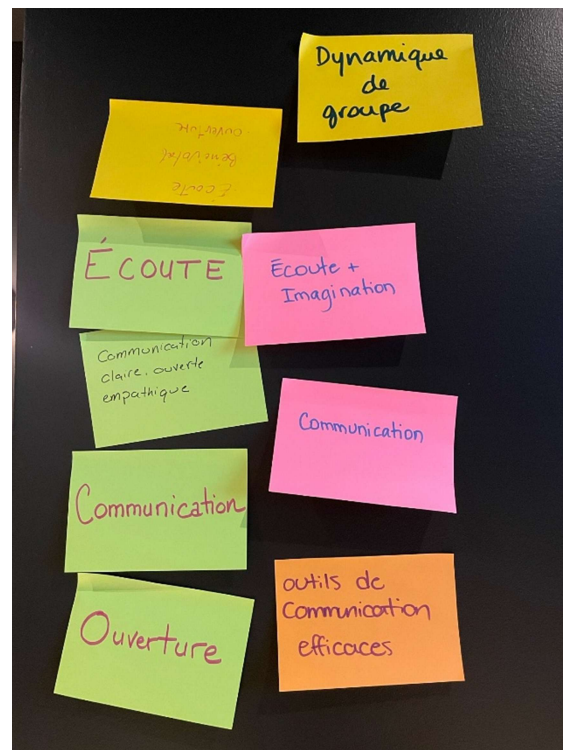 Dynamique
de
groupe
Écoute
ouverture
ÉCOUTE
Écoute +
Imagination
Communication
claire, ouverte
empathique
Communication
Communication
Ouverture
outils de
Communication
efficaces